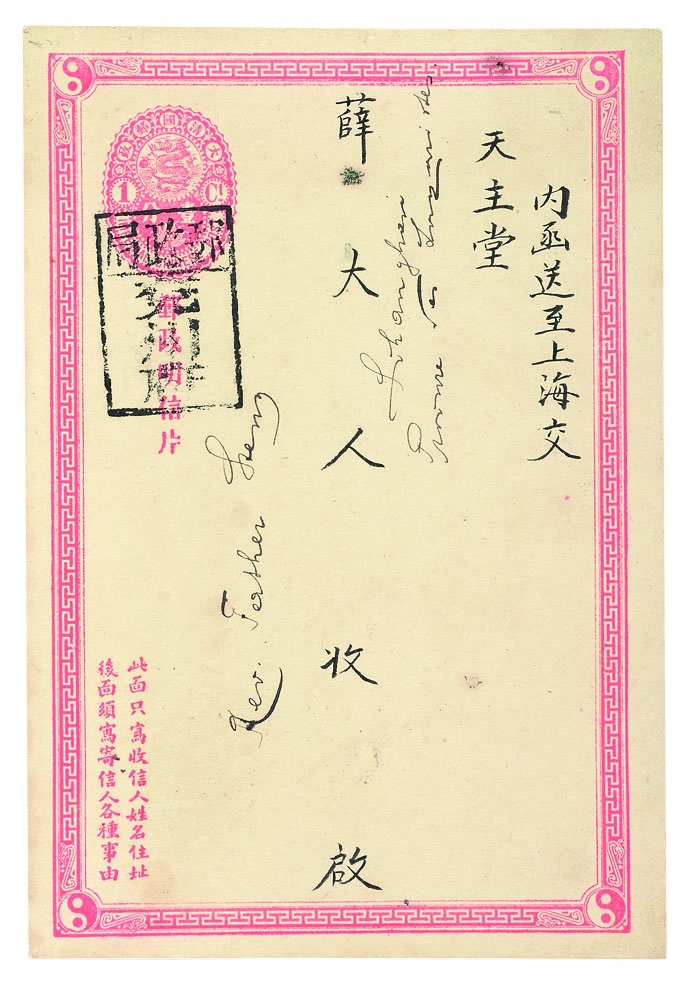 内函送至上海交
天主堂
薛大人收啟
Rev. Father
大清國郵政
1 Ct
郵政局
兗州府
郵政明信片
此面只寫收信人姓名住址
後面須寫寄信人各種事由